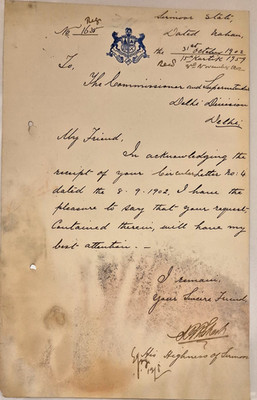 Sirmoor State,
No. 1635
Dated Nahan,
the 31st October 1902
15th Kartik 1959
To,
The Commissioner and Superintendent
Delhi Division
Delhi
My Friend,
In acknowledging the
receipt of your Circular Letter No: 4
dated the 8. 9. 1902, I have the
pleasure to say that your request
contained therein, will have my
best attention. —
I remain,
Your Sincere Friend
His Highness of Sirmoor